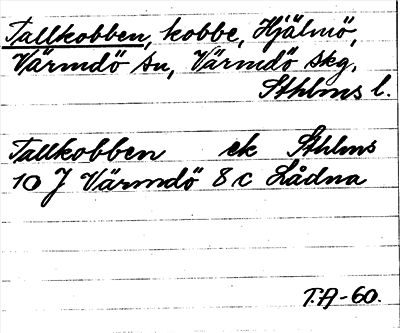 Tallkobben, kobbe, Hjälmö,
Värmdö sn, Värmdö skg,
Sthlms l.
Tallkobben ek Sthlms
10 J Värmdö 8 c Lådna
T.A-60.